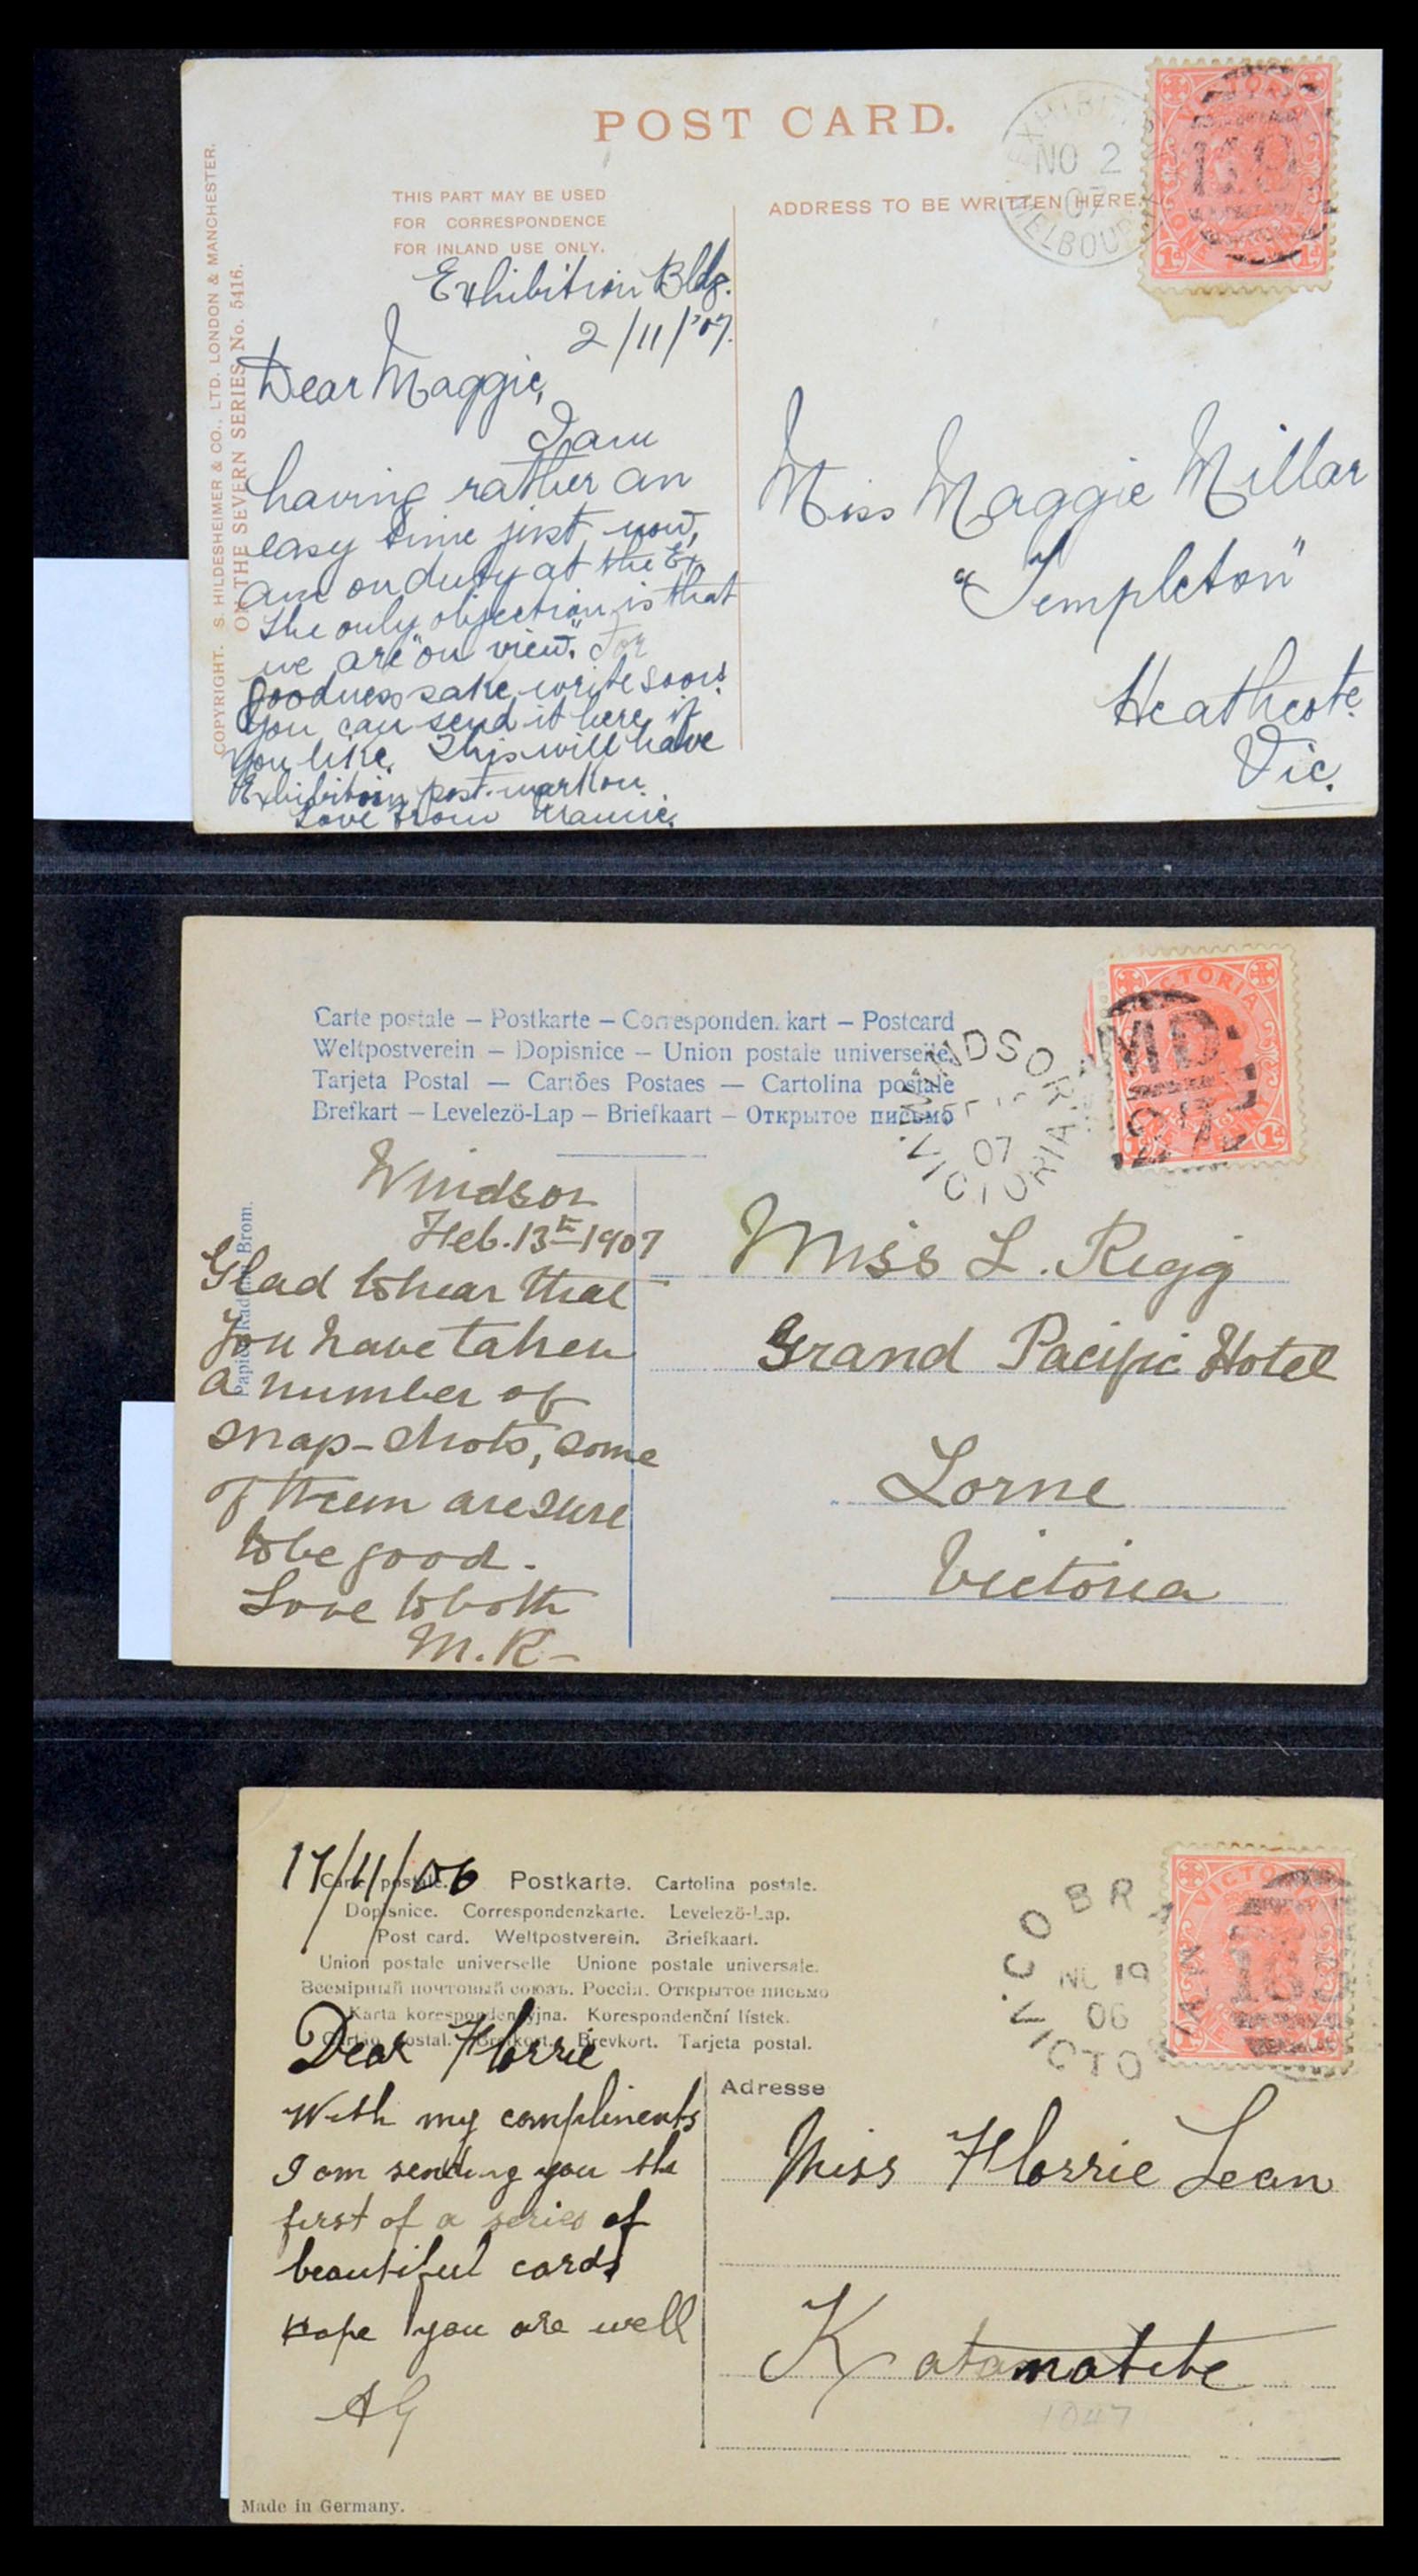 POST CARD.
THIS PART MAY BE USED
FOR CORRESPONDENCE
FOR INLAND USE ONLY.
ADDRESS TO BE WRITTEN HERE.
NO 2
07
COPYRIGHT. S. HILDESHEIMER & CO., LTD. LONDON & MANCHESTER.
ON THE SEVERN SERIES No. 5416.
Exhibition Bldg.
2/11/'07.
Dear Maggie,
I am
having rather an
easy time just now,
am on duty at the Ex.
The only objection is that
we are "on view". For
goodness sake write soon!
You can send it here if
you like. This will have
Exhibition post-mark on.
Love from
Miss Maggie Millar
"Templeton"
Heathcote
Vic.
Carte postale – Postkarte – Corresponden. kart – Postcard
Weltpostverein – Dopisnice – Union postale universelle.
Tarjeta Postal — Cartões Postaes — Cartolina postale
Brefkart – Levelezö-Lap – Briefkaart – Открытое письмо
WINDSOR
07
VICTORIA
VICTORIA
MD
Brom.
Windsor
Feb. 13th 1907
Glad to hear that
you have taken
a number of
snap-shots, some
of them are sure
to be good.
Love to both
M.R–
Miss L. Rigg
Grand Pacific Hotel
Lorne
Victoria
17/11/06
Carte postale. Postkarte. Cartolina postale.
Dopisnice. Correspondenzkarte. Levelező-Lap.
Post card. Weltpostverein. Briefkaart.
Union postale universelle Unione postale universale.
Всемірный почтовый союзъ. Россія. Открытое письмо
Karta korespondencyjna. Korespondenční lístek.
Brevkort. Tarjeta postal.
NO 19
06
Dear Florrie
With my compliments
I am sending you the
first of a series of
beautiful cards
Hope you are well
AG
Adresse
Miss Florrie Lean
Katamatite
1047
Made in Germany.